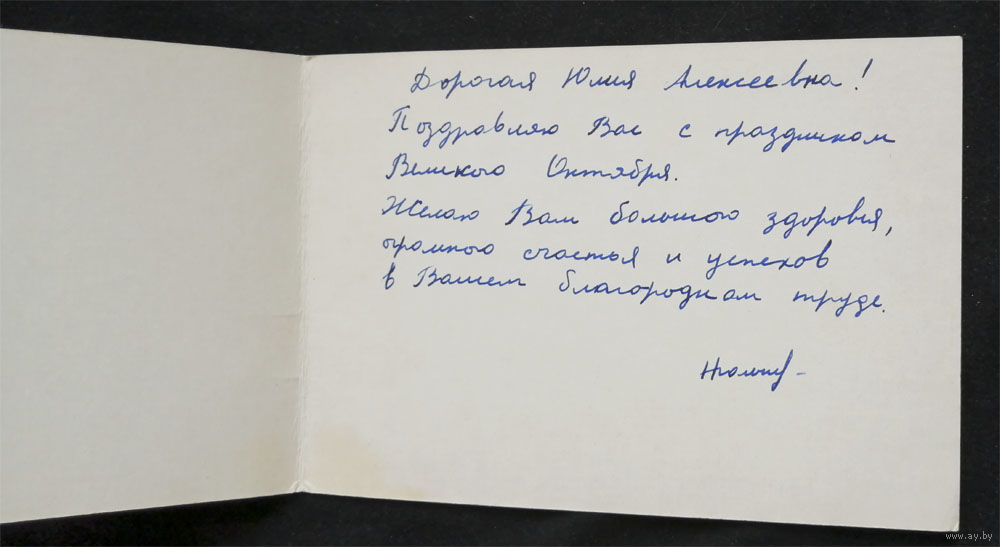 Дорогая Юлия Алексеевна!
Поздравляю Вас с праздником
Великого Октября.
Желаю Вам большого здоровья,
огромного счастья и успехов
в Вашем благородном труде.
www.ay.by